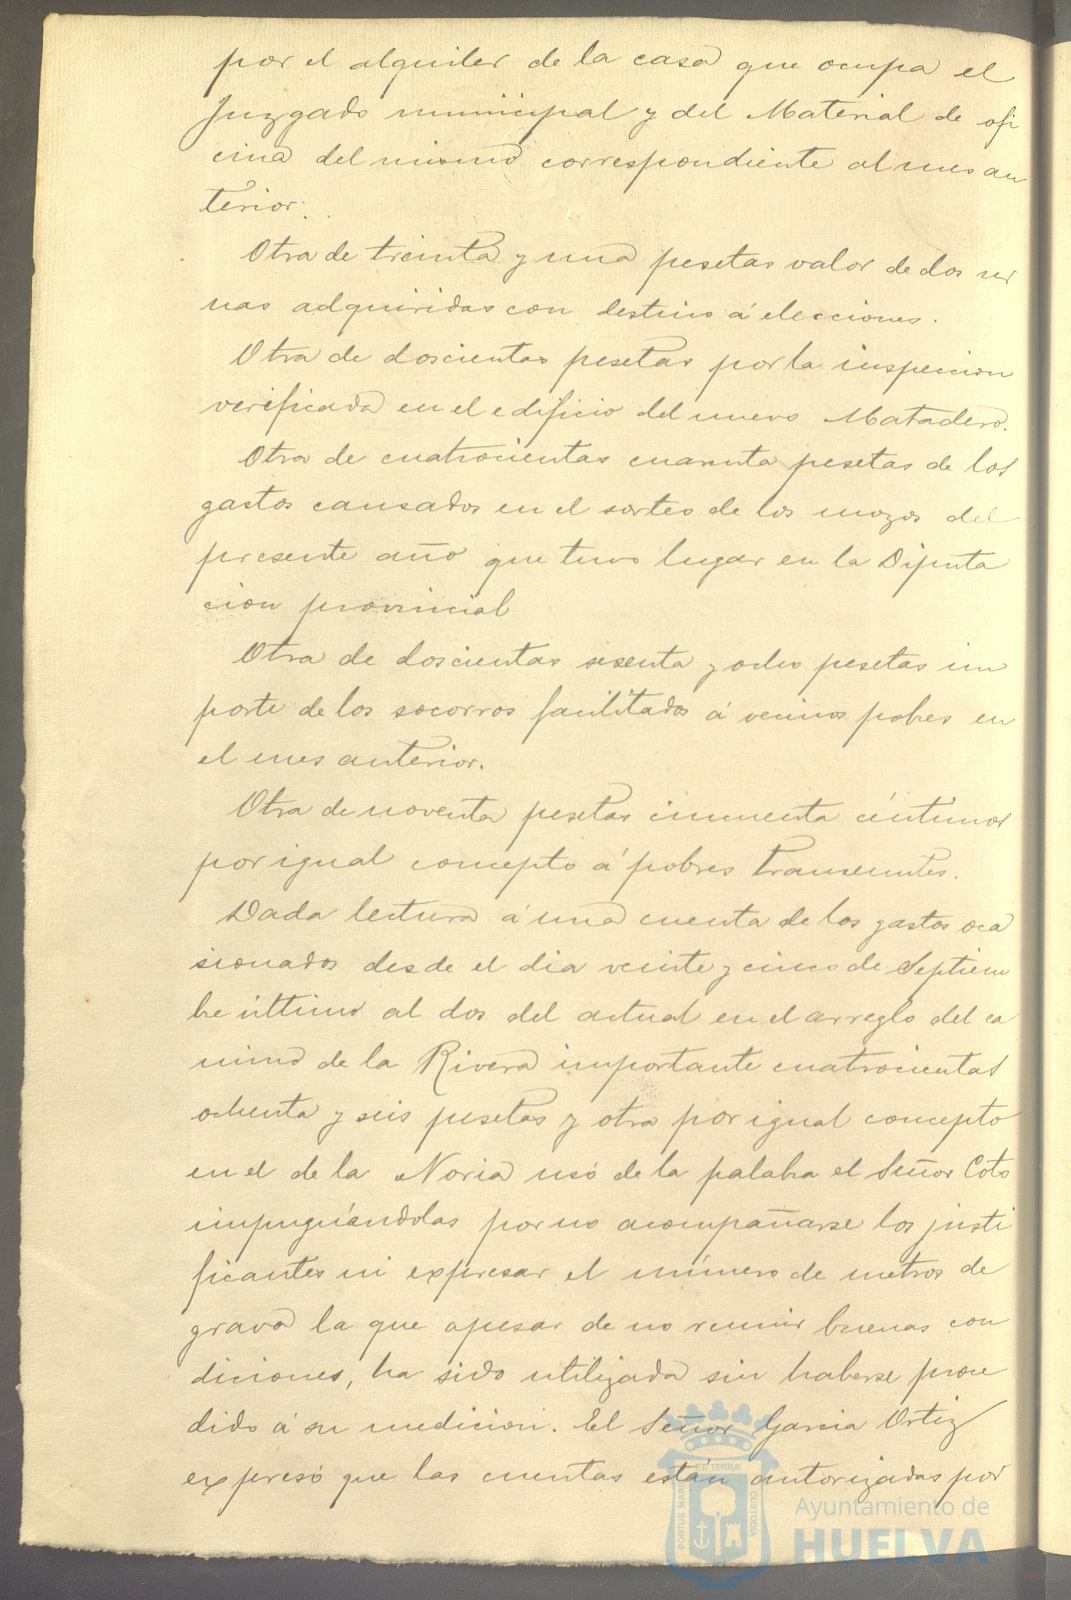 por el alquiler de la casa que ocupa el
Juzgado municipal y del Material de ofi
cina del mismo correspondiente al mes an
terior.
Otra de treinta y una pesetas valor de dos ur
nas adquiridas con destino á elecciones.
Otra de doscientas pesetas por la inspeccion
verificada en el edificio del nuevo Matadero.
Otra de cuatrocientas cuarenta pesetas de los
gastos causados en el sorteo de los mozos del
presente año que tuvo lugar en la Diputa
cion provincial
Otra de doscientas sesenta y ocho pesetas im
porte de los socorros facilitados á vecinos pobres en
el mes anterior.
Otra de noventa pesetas cincuenta céntimos
por igual concepto á pobres transeuntes.
Dada lectura á una cuenta de los gastos oca
sionados desde el dia veinte y cinco de Septiem
bre último al dos del actual en el arreglo del ca
mino de la Rivera importante cuatrocientas
ochenta y seis pesetas y otra por igual concepto
en el de la Noria usó de la palabra el Señor Coto
impugnándolas por no acompañarse los justi
ficantes ni expresar el número de metros de
grava la que apesar de no reunir buenas con
diciones, ha sido utilizada sin haberse proce
dido á su medicion. El Señor Garcia Ortiz
expresó que las cuentas están autorizadas por
PORTUS MARIS ET TERRÆ CUSTODIA
Ayuntamiento de
HUELVA